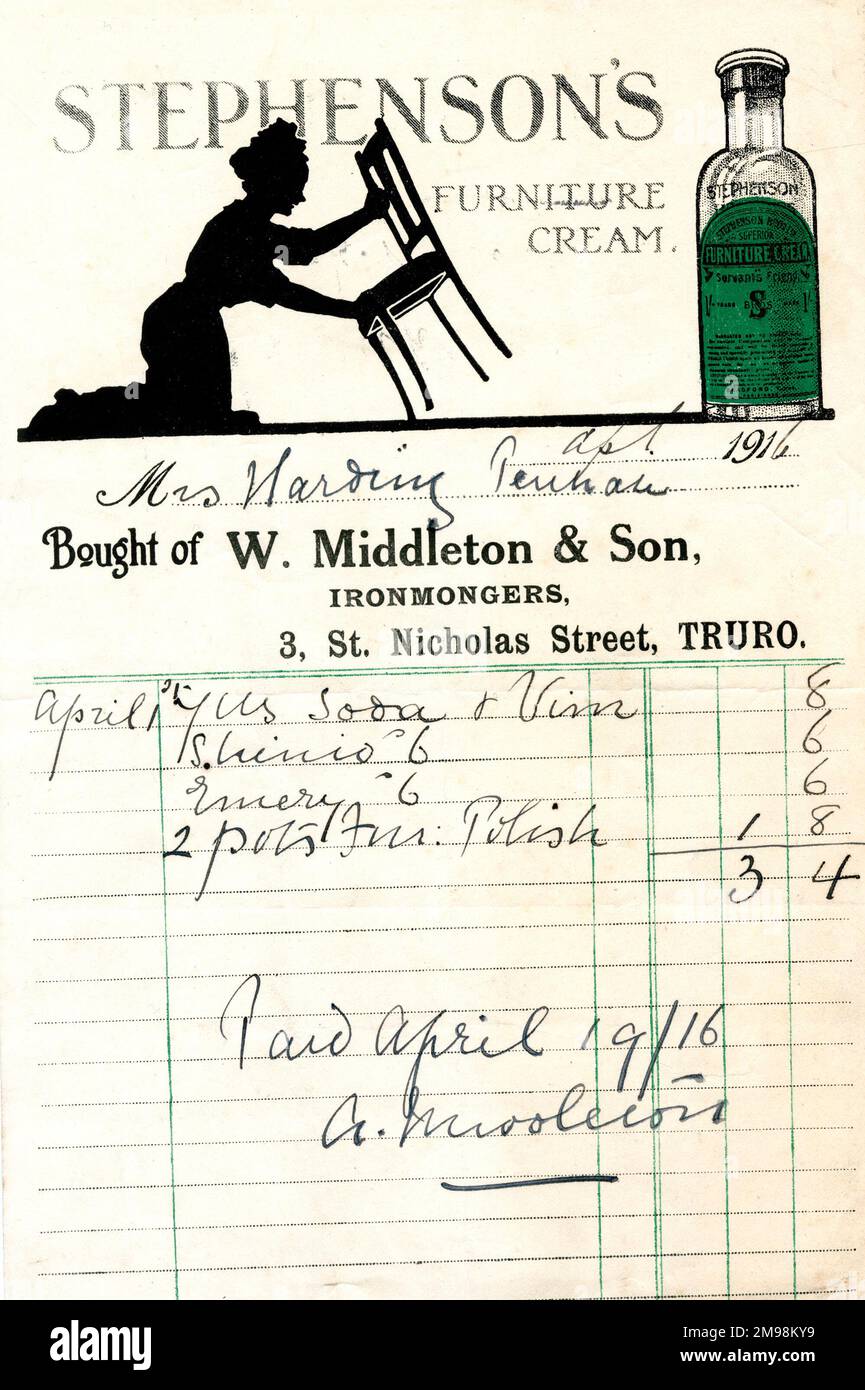 STEPHENSON'S
FURNITURE
CREAM.
STEPHENSON
STEPHENSON BROS LTD
SUPERIOR
FURNITURE CREAM
Servants Friend
TRADE MARK
BROS
S
apl. 1916
Mrs Harding
Bought of W. Middleton & Son,
IRONMONGERS,
3, St. Nicholas Street, TRURO.
April 1st 7 lbs Soda & Vim 8
6 6
Emery 6 6
2 pots Fur: Polish 1 8
3 4
Paid April 19/16
A. Middleton
alamy
alamy
Image ID: 2M98KY9
www.alamy.com